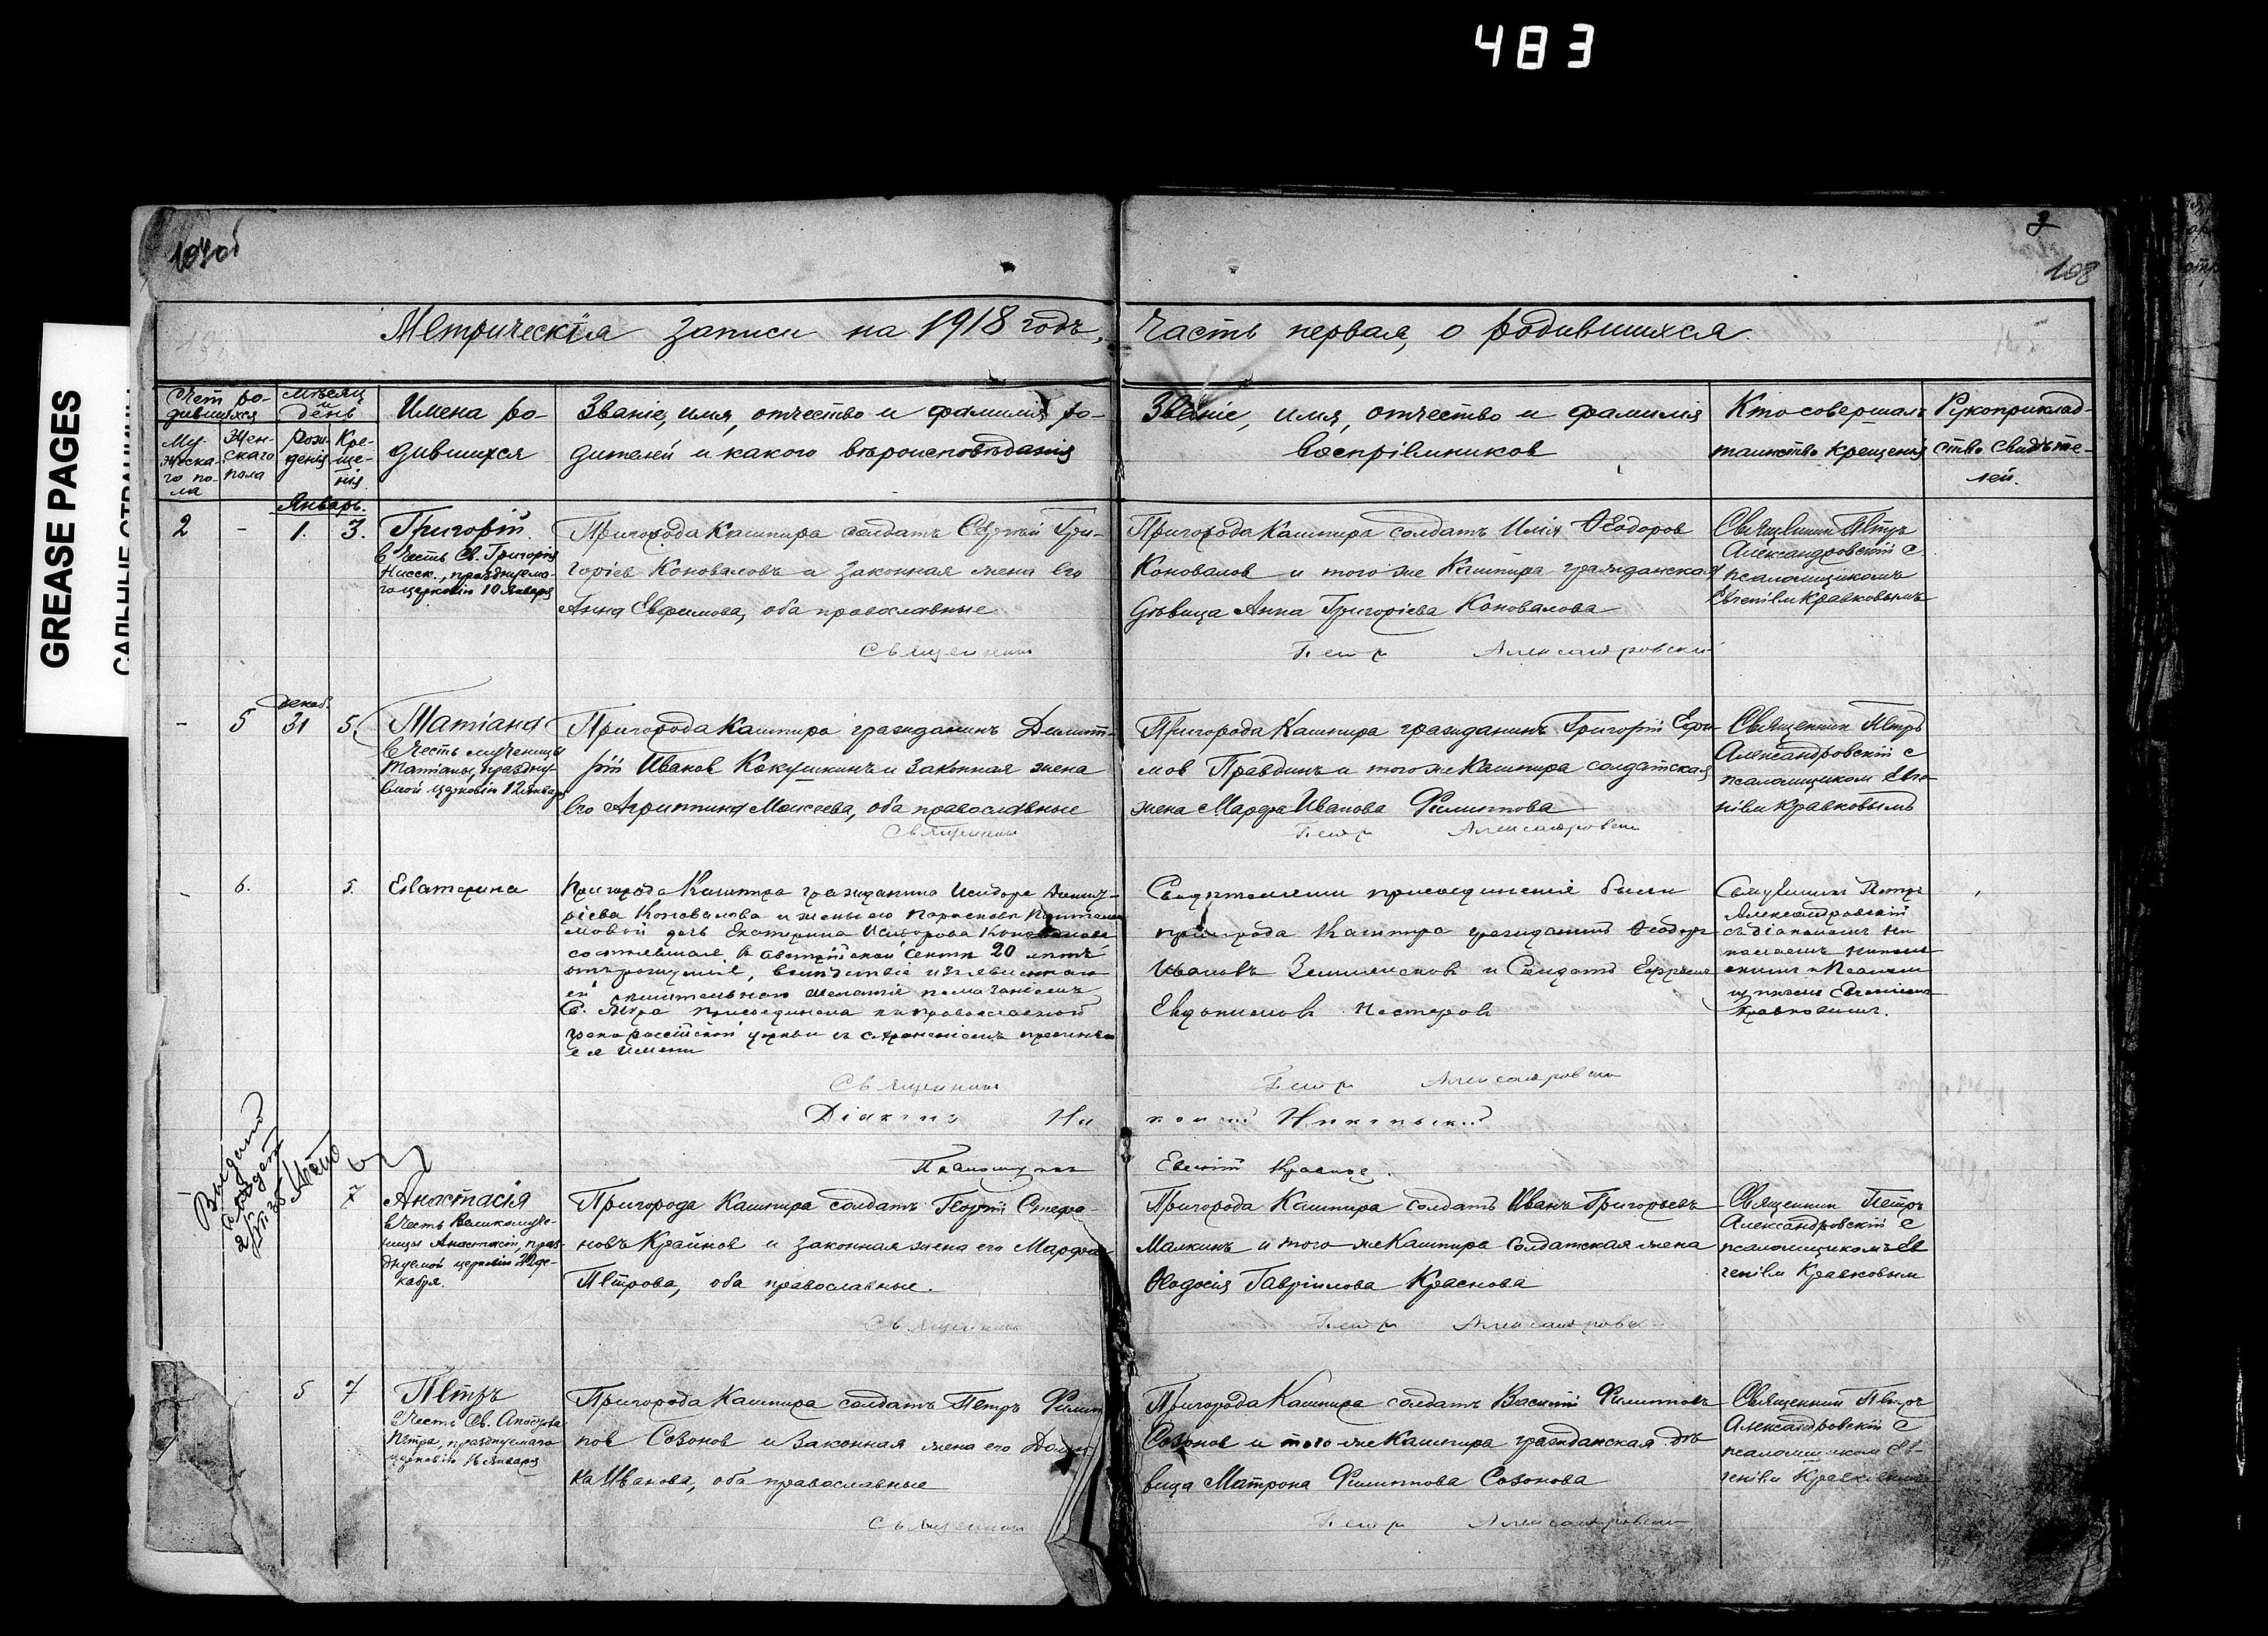 483
GREASE PAGES
107об
108
Метрическія записи на 1918 годъ,
Часть первая, о родившихся.
Счет ро-
дившихся
Му-
жеска-
го по-
ла
Жен-
скаго
пола
Мѣсяц
и
день
Рож-
денія
Кре-
ще-
нія
Имена ро-
дившихся
Званіе, имя, отчество и фамилія ро-
дителей и какого вѣроисповѣданія
Званіе, имя, отчество и фамилія
воспріемников
Кто совершалъ
таинство крещенія
Рукоприклад-
ство свидѣте-
лей.
Январь.
2 - 1. 3.
Григорій.
в честь Св. Григорія
Нисск., празднуема-
го церковію 10 Января
Пригорода Кашпира солдатъ Сергѣй Гри-
горіев Коноваловъ и законная жена его
Анна Евфимова, оба православные
Священник
Пригорода Кашпира солдатъ Илія Ѳеодоров
Коновалов и того же Кашпира гражданская
дѣвица Анна Григоріева Коновалова
Петр Александровский
Священник Петръ
Александровскій с
псаломщикомъ
Евгеніем Кравковымъ
- 5 декаб. 31 5.
Татіана
в честь мученицы
Татіаны, праздну-
емой церковію 12 января
Пригорода Кашпира гражданинъ Димит-
рій Иванов Кокушкинъ и законная жена
его Агриппина Моисеева, оба православные
Священник
Пригорода Кашпира гражданинъ Григорій Ефи-
мов Правдинъ и того же Кашпира солдатская
жена Марфа Иванова Филиппова
Петр Александровский
Священник Петръ
Александровскій с
псаломщиком Евге-
ніем Кравковымъ
- 6. 5.
Екатерина
Пригорода Кашпира гражданина Исидора
Коновалова и жены его Параскевы
дочь Екатерина Исидорова Коновалова
состоявшая в Австрійской секте 20 лѣтъ
отъ рожденія, вслѣдствіе изъявленнаго
ей желанія помазаніемъ
Св. Мѵра присоединена къ православной
грекороссійской церкви съ сохраненіемъ прежняго
ея имени
Священник
Діаконъ Ни
Псаломщикъ
Свидѣтелями присоединенія были
пригорода Кашпира гражданинъ Ѳеодоръ
Ивановъ и Солдатъ Ефремъ
Евдокимовъ Нестеровъ
Петр Александровский
Евгеній
Священникъ Петръ
Александровскій
съ діакономъ Ни-
и Псалом-
щикомъ Евгеніемъ
Кравковымъ.
Выдано
7
Анастасія
в честь Великомуче-
ницы Анастасіи, праз-
днуемой церковію 22 де-
кабря.
Пригорода Кашпира солдатъ Георгій Стефа-
новъ Крайнов и законная жена его Марфа
Петрова, оба православные.
Священник
Пригорода Кашпира солдатъ Иванъ Григорьевъ
Малкинъ и того же Кашпира солдатская жена
Ѳеодосія Гавріилова Краснова
Петр Александровский
Священник Петръ
Александровскій с
псаломщикомъ Ев
геніем Кравковым
5 7
Петръ
в честь Св. Апостола
Петра, празднуемаго
церковію 16 января
Пригорода Кашпира солдатъ Петръ Филип
пов Созонов и законная жена его Домни-
ка Иванова, оба православные
Священник
Пригорода Кашпира солдатъ Василій Филипповъ
Созонов и того же Кашпира гражданская дѣ-
вица Матрона Филиппова Созонова
Петр Александровский
Священник Петръ
Александровскій с
псаломщиком Ев-
геніем Кравковым